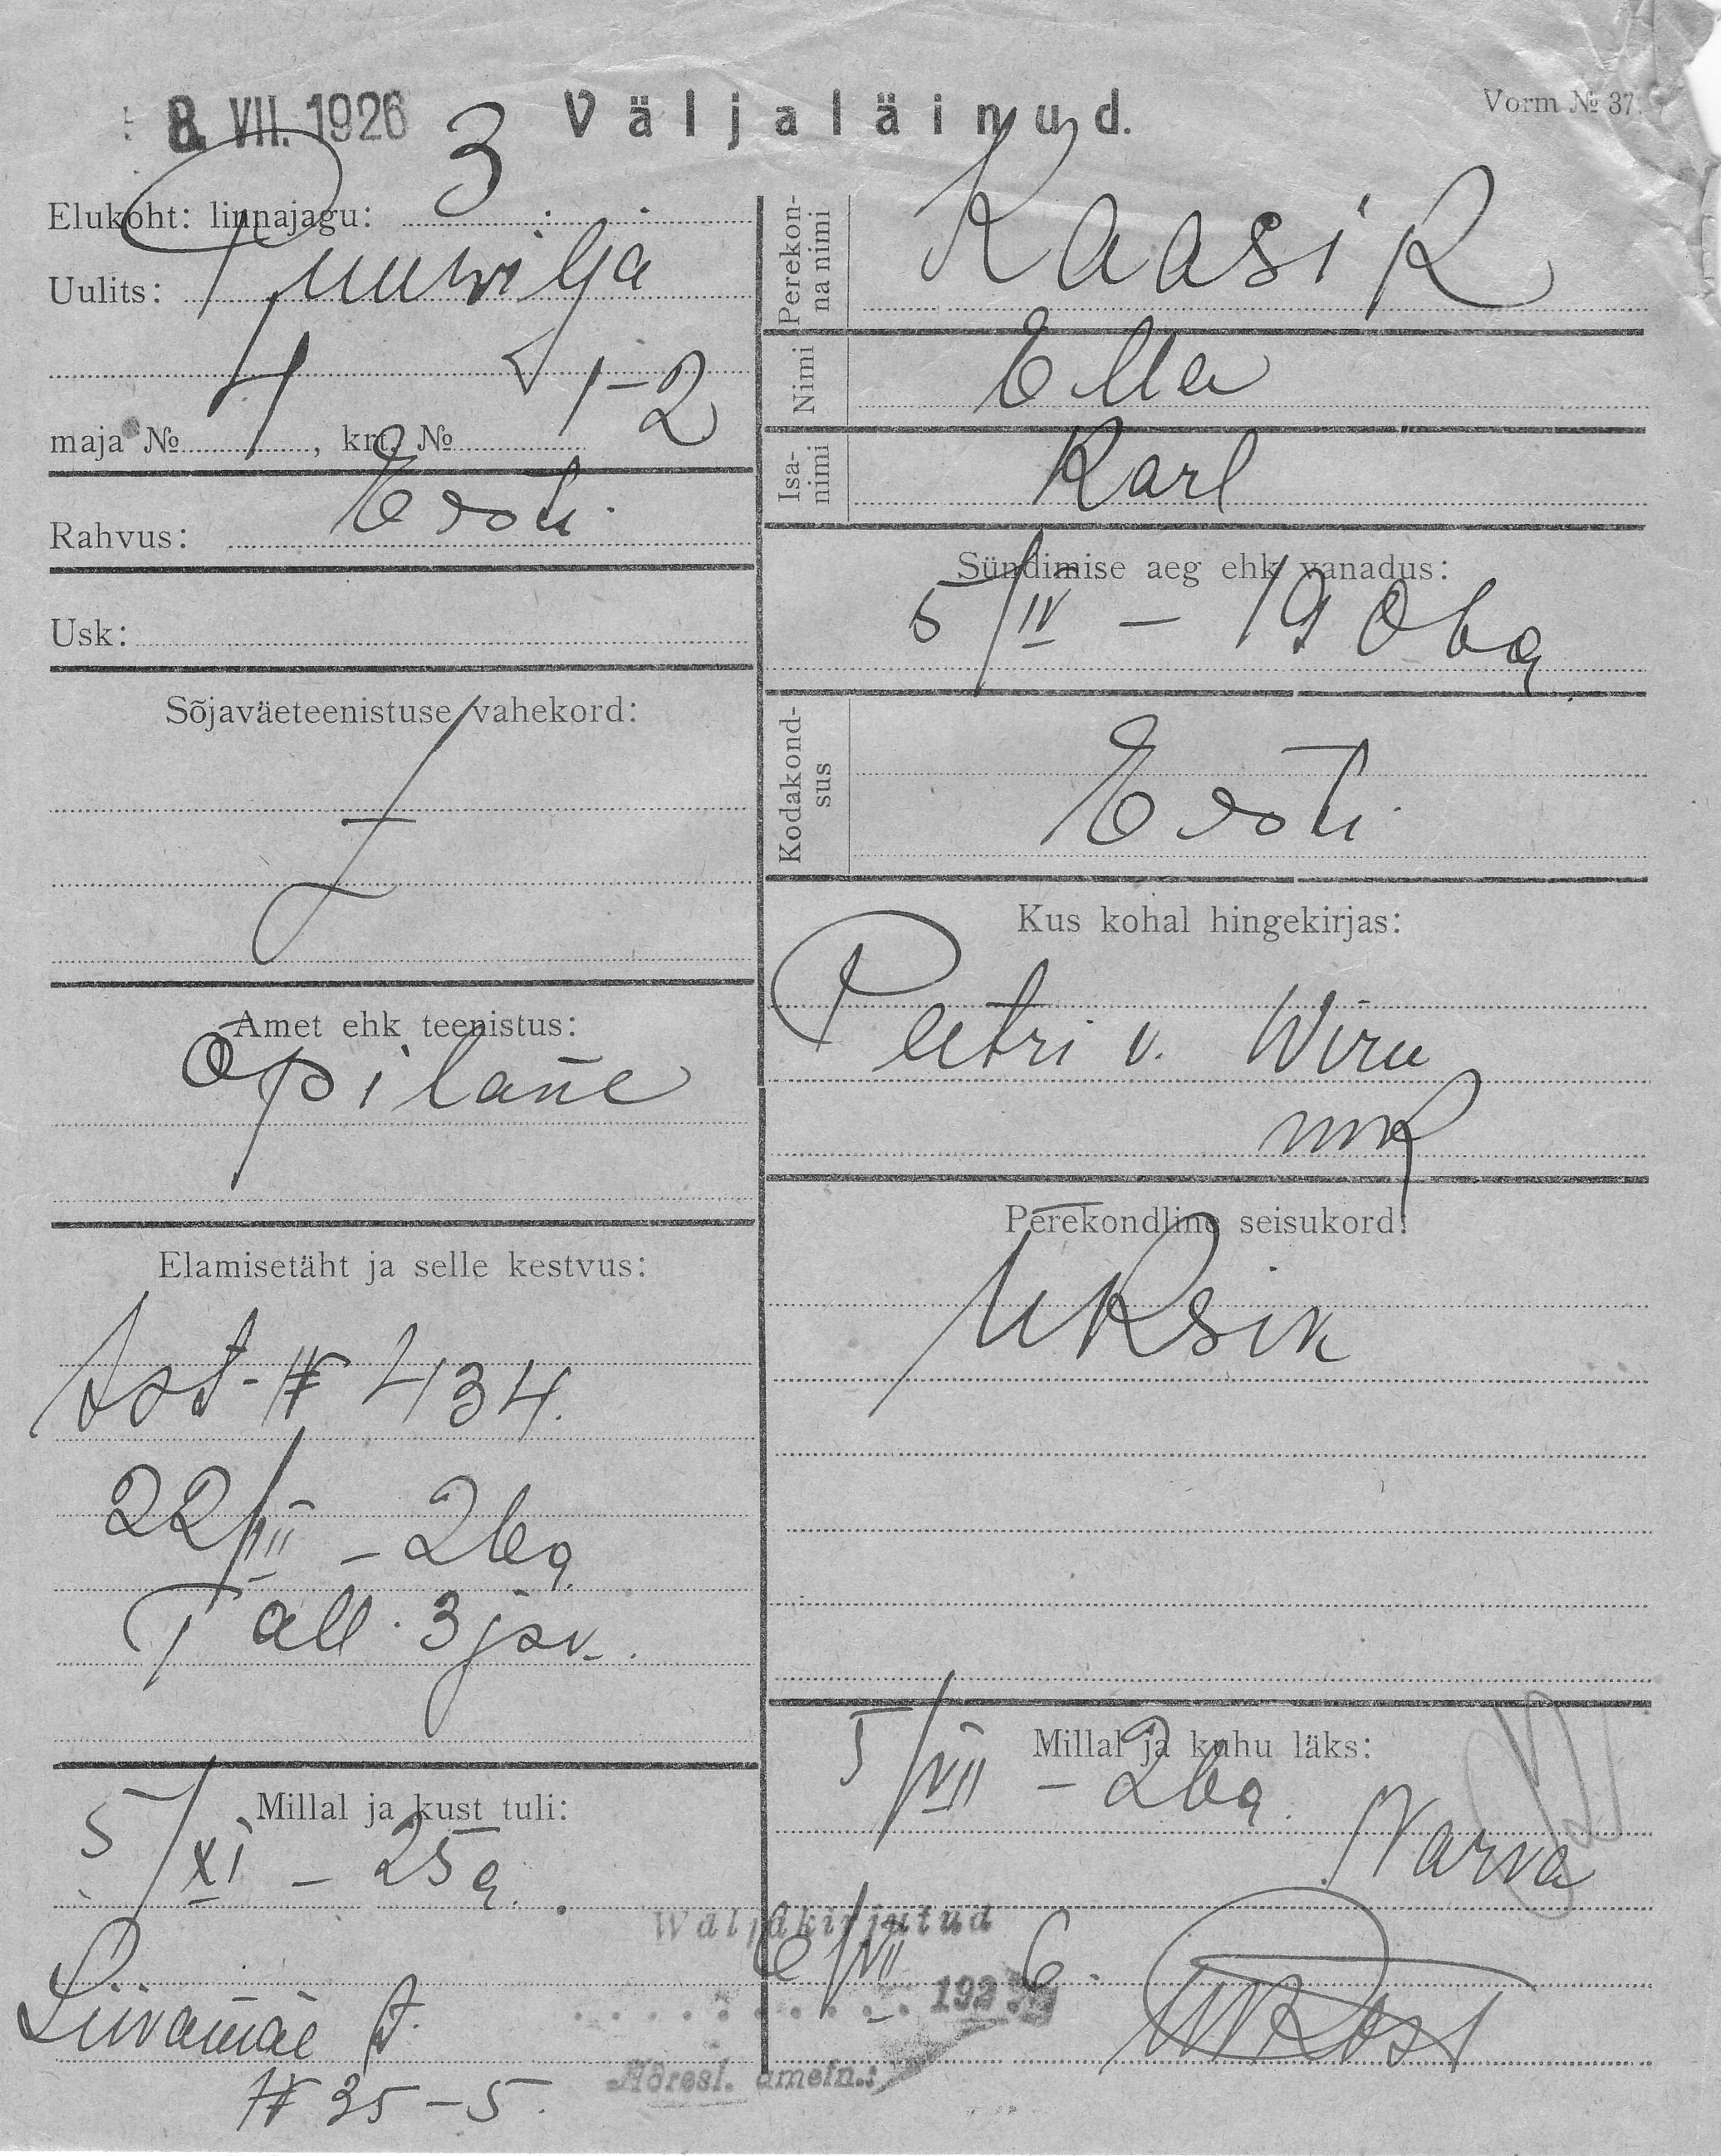 8. VII. 1926
Väljaläinud.
Vorm № 37.
Elukoht: linnajagu: 3
Uulits: Puuwilja
maja № 4, krt. № 1-2
Rahvus: Eesti
Usk:
Sõjaväeteenistuse vahekord:
Amet ehk teenistus:
Õpilane
Elamisetäht ja selle kestvus:
tst. № 434.
22/III – 26 a.
Tall. 3 jsk.
Millal ja kust tuli:
5/XI – 25 a.
Liivamäe t.
№ 35 – 5.
Perekonna nimi
Kaasik
Nimi
Ella
Isanimi
Karl
Sündimise aeg ehk vanadus:
5/IV – 1906 a
Kodakondsus
Eesti
Kus kohal hingekirjas:
Peetri v. Wiru
mk
Perekondline seisukord:
Üksik
Millal ja kuhu läks:
5/VII – 26 a.
Narva
Waljakirjutud
6/VII 192 6.
Adresl. ametn.: